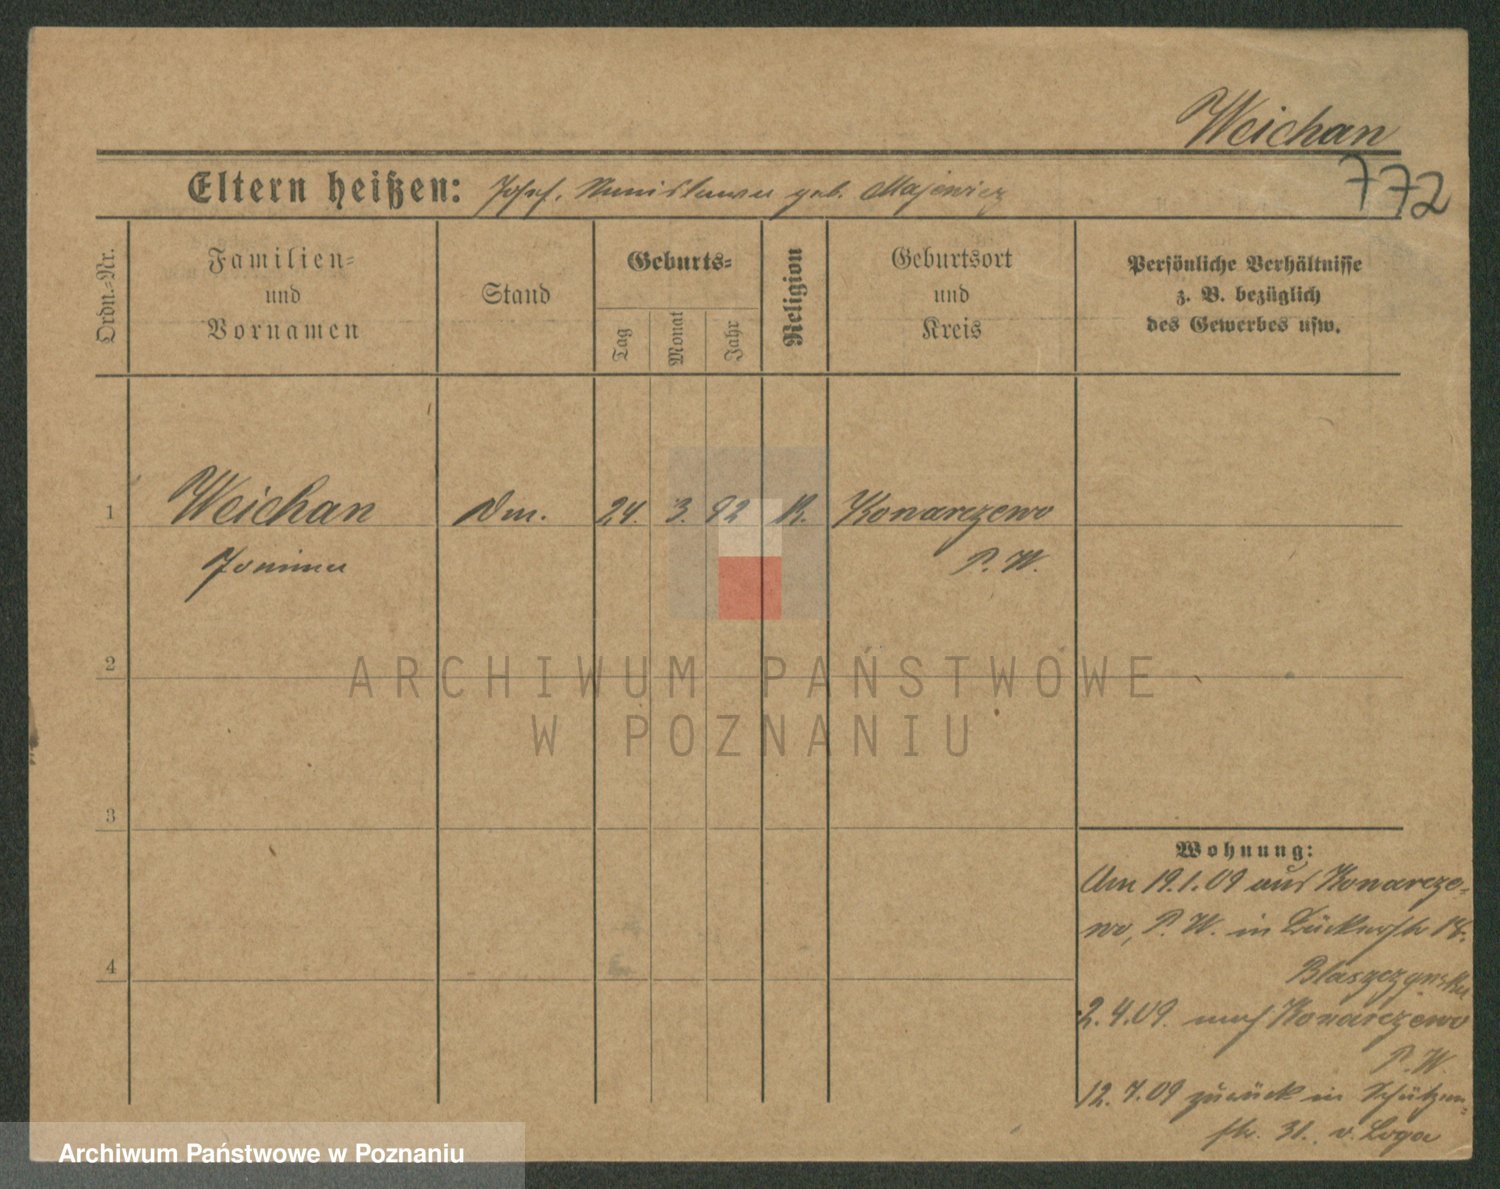 Weichan
772
Eltern heißen: Josef, Stanislawa geb. Majewicz
Ordn.-Nr.
Familien-
und
Vornamen
Stand
Geburts-
Tag
Monat
Jahr
Religion
Geburtsort
und
Kreis
Persönliche Verhältnisse
z. B. bezüglich
des Gewerbes usw.
1
Weichan
Dm. 24. 3. 92 K. Konarzewo
Janina
P. W.
2
ARCHIWUM PAŃSTWOWE
W POZNANIU
3
Wohnung:
Am 19.1.09 aus Konarze-
wo, P. W. in 18.
Blaszczynska
4
2.4.09. nach Konarzewo
P. W.
12.7.09 zurück in Schützen-
str. 31. v. Loga
Archiwum Państwowe w Poznaniu